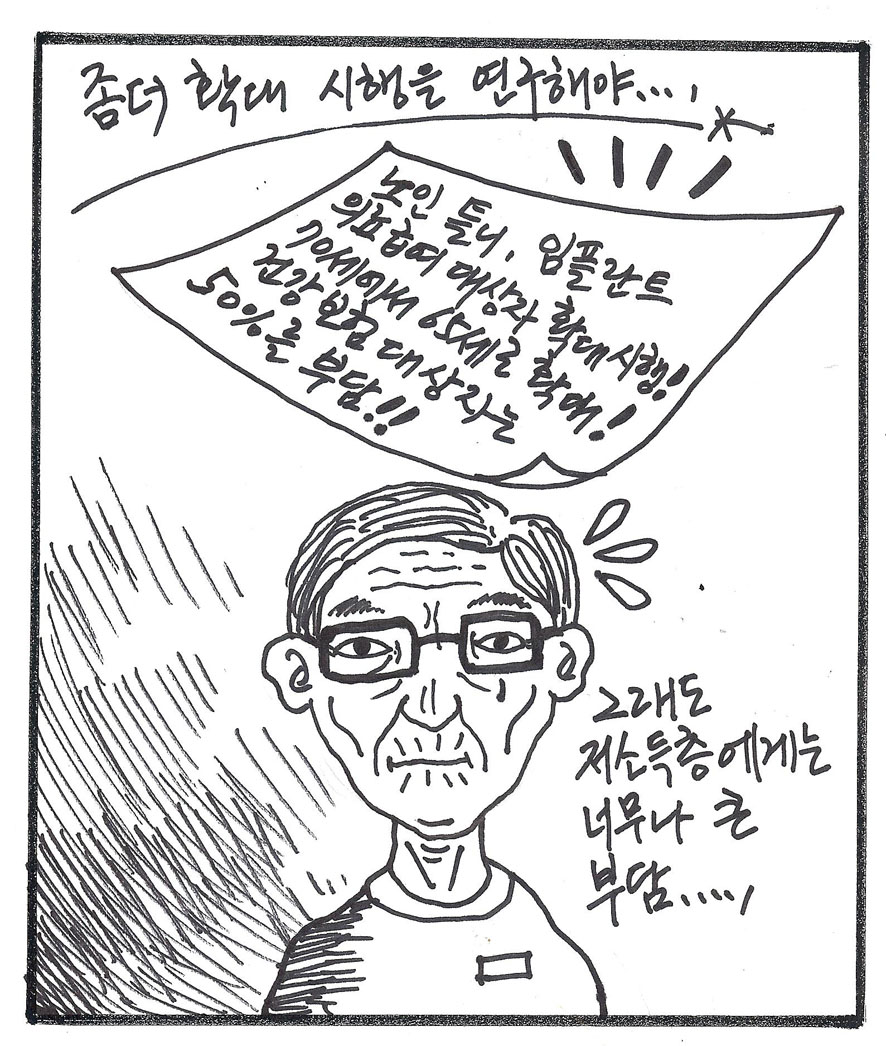 좀더 확대 시행을 연구해야....
노인 틀니, 임플란트
의료급여 대상자 확대시행!
70세에서 65세로 확대!
건강보험 대상자는
50%를 부담!!
그래도
저소득층에게는
너무나 큰
부담.....